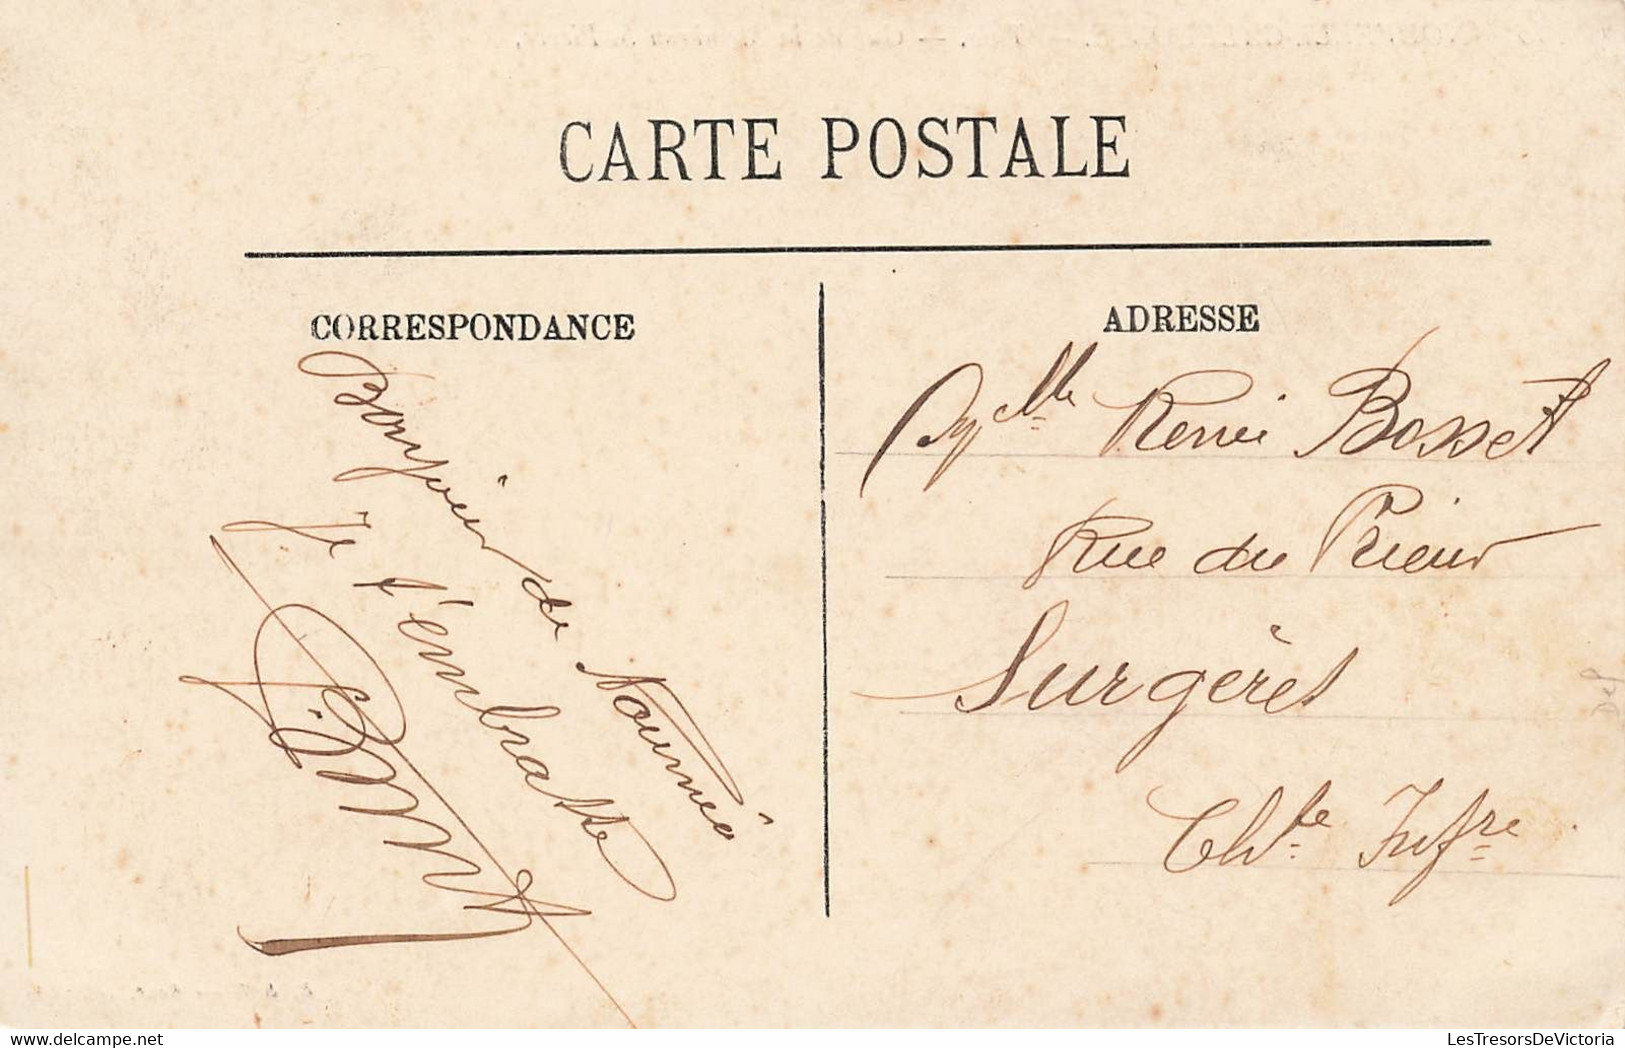 CARTE POSTALE
CORRESPONDANCE
Bonjour de Nouméa
Je t'embrasse
ADRESSE
Mlle Renée Bosset
Rue du Prieur
Surgères
Chte Infre
Def
LesTresorsDeVictoria